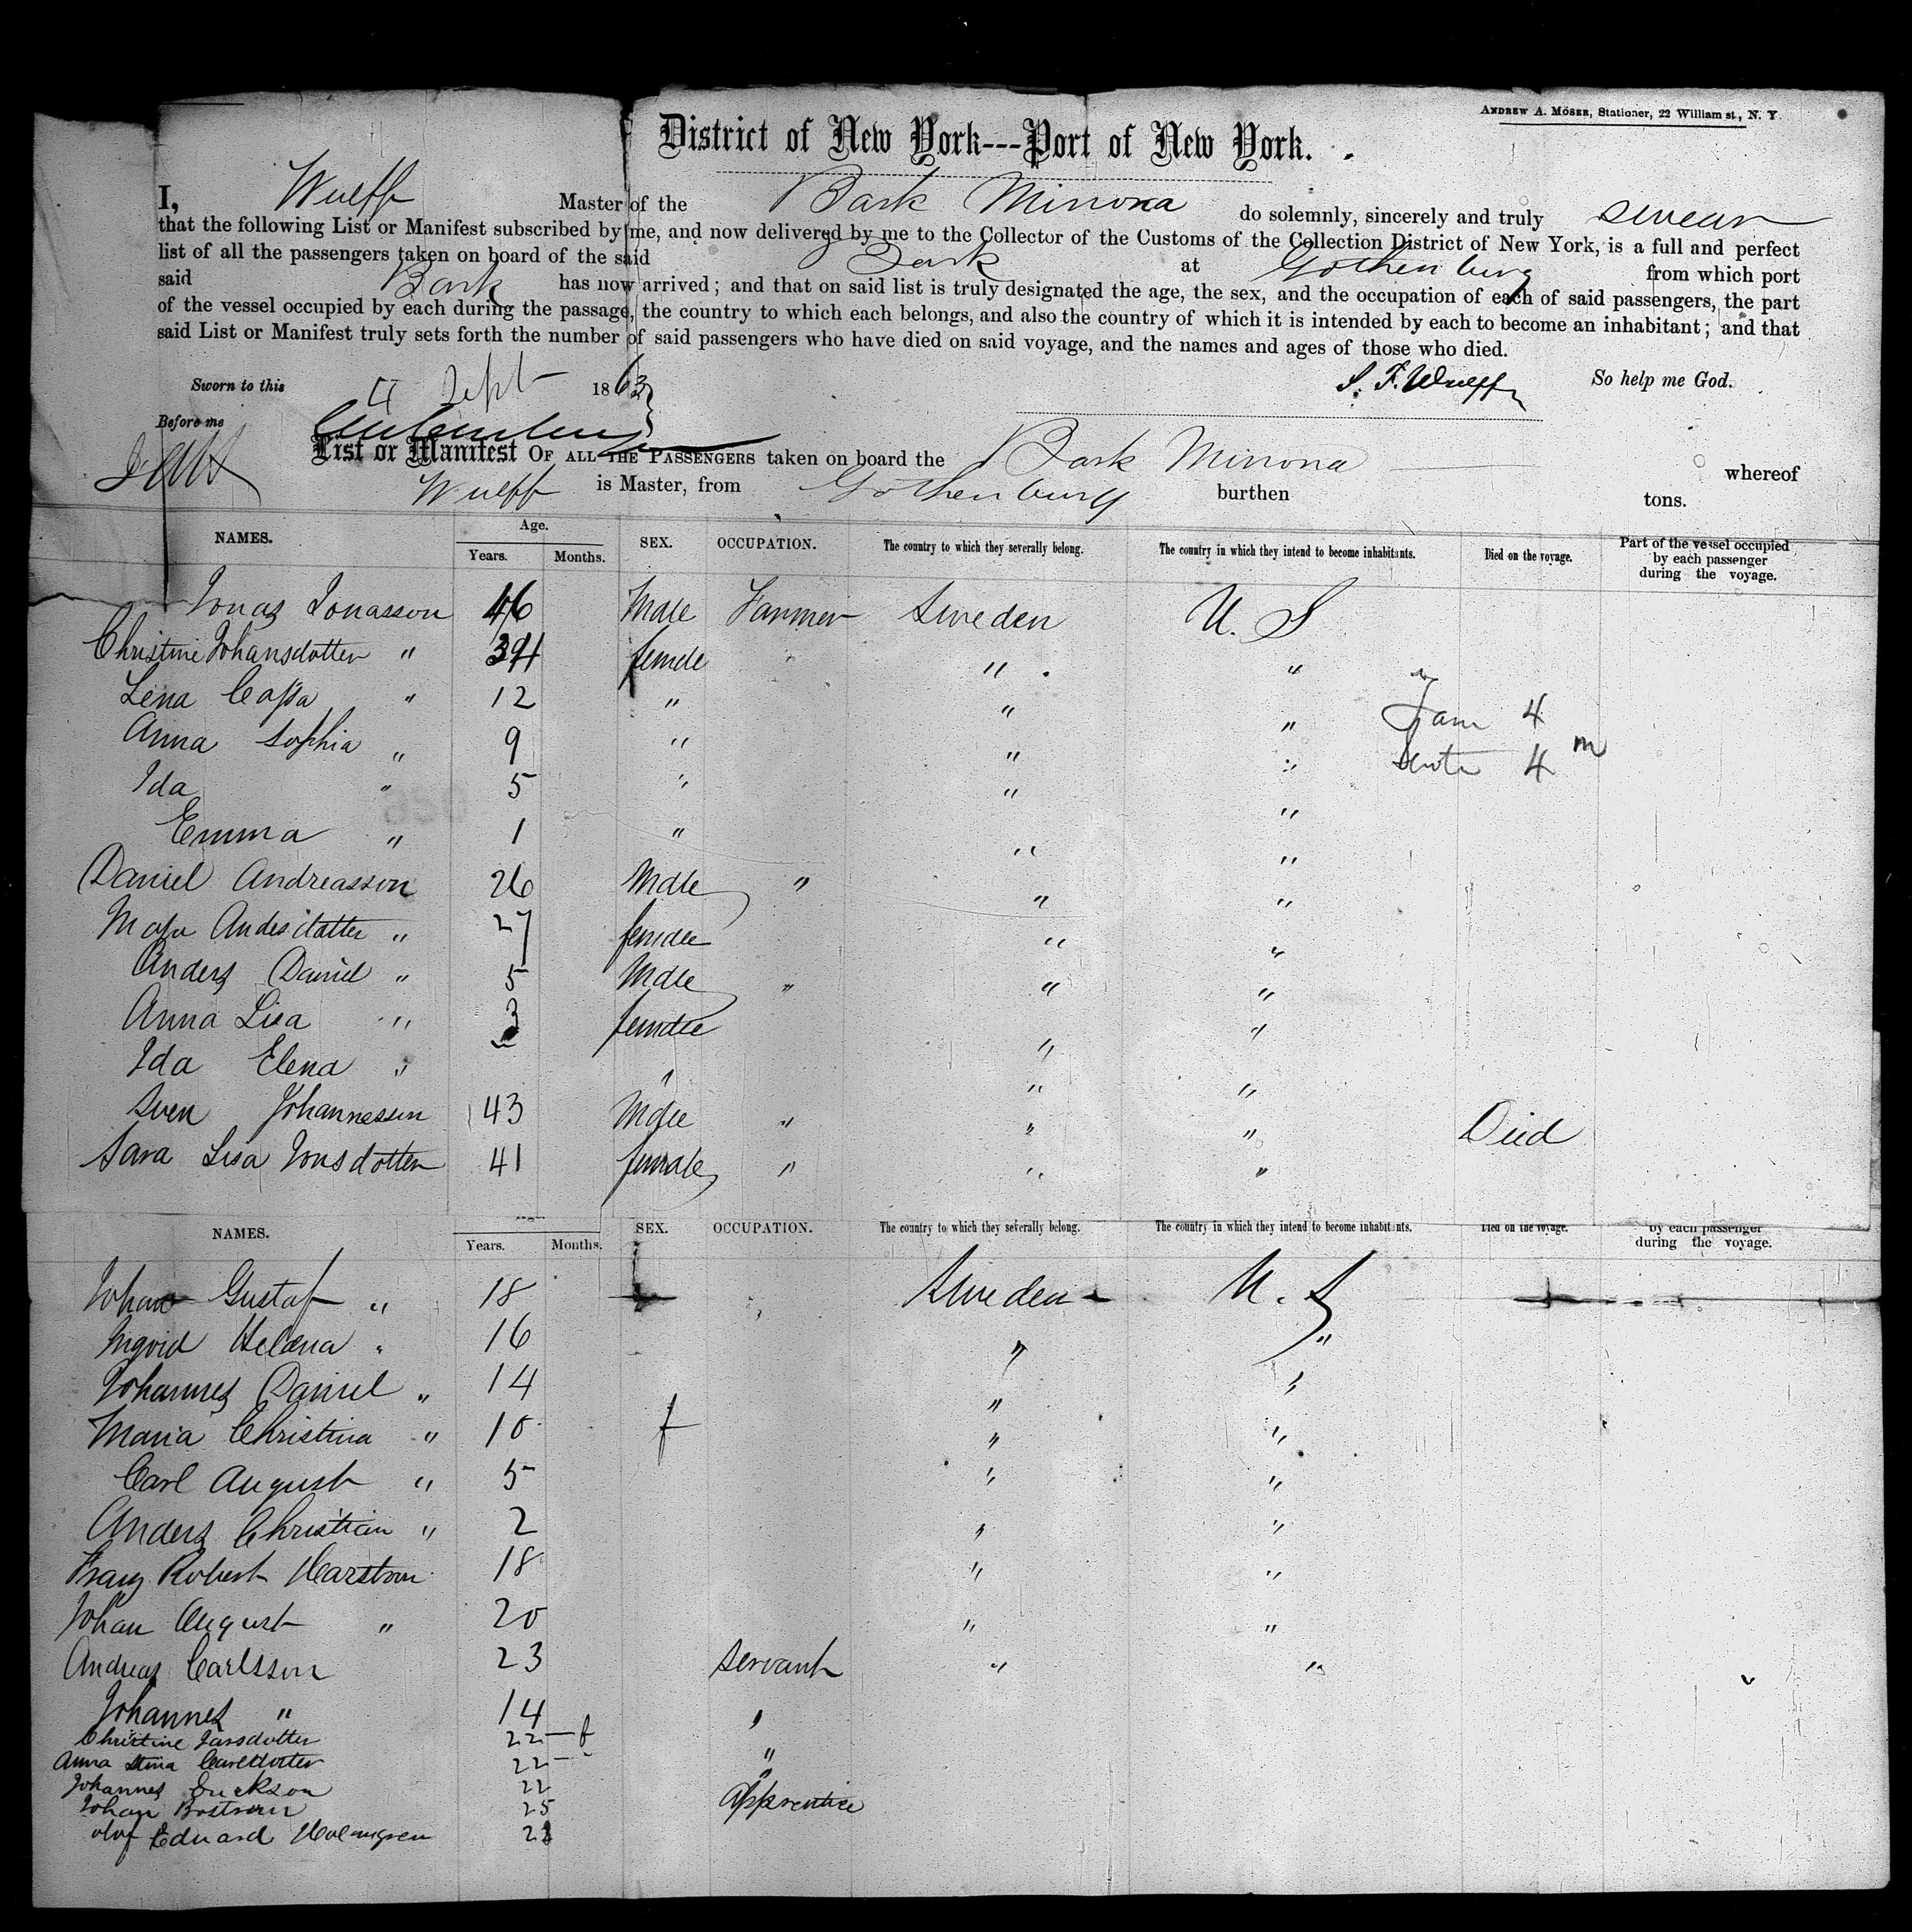 ANDREW A. MOSER, Stationer, 22 William st., N. Y.
District of New York---Port of New York.
I, Wulff Master of the Bark Minona do solemnly, sincerely and truly swear
that the following List or Manifest subscribed by me, and now delivered by me to the Collector of the Customs of the Collection District of New York, is a full and perfect
list of all the passengers taken on board of the said Bark at Gothenburg from which port
said Bark has now arrived; and that on said list is truly designated the age, the sex, and the occupation of each of said passengers, the part
of the vessel occupied by each during the passage, the country to which each belongs, and also the country of which it is intended by each to become an inhabitant; and that
said List or Manifest truly sets forth the number of said passengers who have died on said voyage, and the names and ages of those who died.
Sworn to this 4 Sept 1863 S. F. Wulff So help me God.
Before me
List or Manifest OF ALL THE PASSENGERS taken on board the Bark Minona whereof
Wulff is Master, from Gothenburg burthen tons.
NAMES. Age. Years. Months. SEX. OCCUPATION. The country to which they severally belong. The country in which they intend to become inhabitants. Died on the voyage. Part of the vessel occupied by each passenger during the voyage.
Jonas Jonasson 46 Male Farmer Sweden U. S
Christine Johansdotter " 34 female " "
Lena Cajsa " 12 " " "
Anna Sophia " 9 " " " 4
Ida " 5 " " " 4 m
Emma " 1 " " "
Daniel Andreasson 26 Male " " "
Maja Andersdotter " 27 female " "
Anders Daniel " 5 Male " " "
Anna Lisa " 3 female " "
Ida Elena " " " "
Sven Johannesson 43 Male " " " Died
Sara Lisa Jonsdotter 41 female " " "
NAMES. Years. Months. SEX. OCCUPATION. The country to which they severally belong. The country in which they intend to become inhabitants. Died on the voyage. by each passenger during the voyage.
Johan Gustaf " 18 Sweden U. S
Ingrid Helena " 16 " "
Johannes Daniel " 14 " "
Maria Christina " 10 f " "
Carl August " 5 " "
Anders Christian " 2 " "
Frans Robert 18 " "
Johan August " 20 " "
Andreas Carlsson 23 servant " "
Johannes " 14 "
Christine Larsdotter 22 f "
Anna Stina Carlsdotter 22 "
Johannes Erickson 22 Apprentice
Johan Bostrom 25
Olof Eduard Holmgren 21